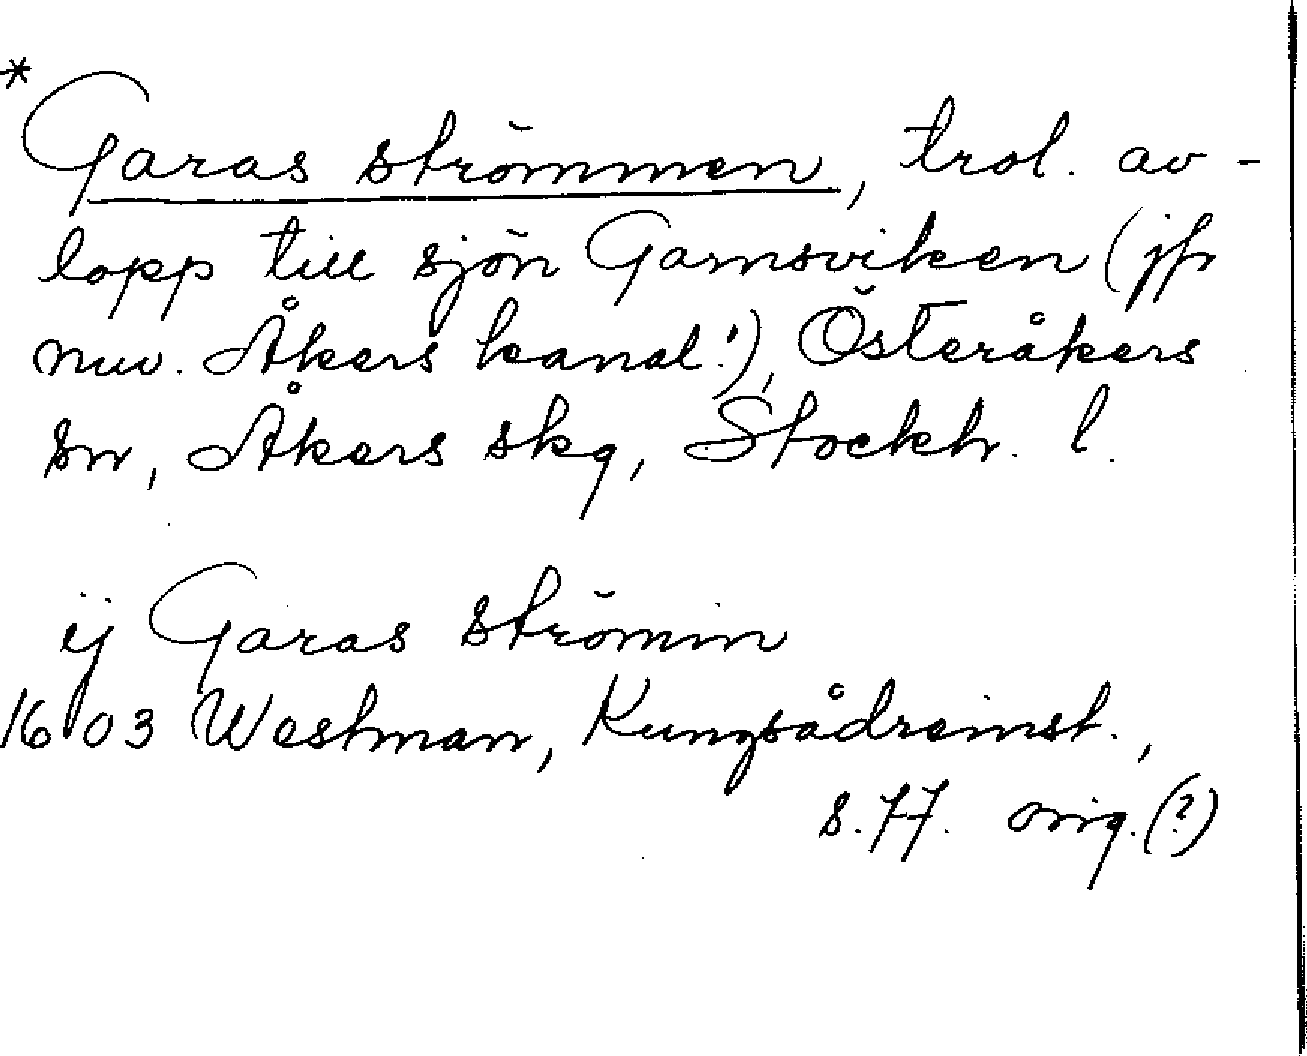 * Garas strömmen, trol. av-
lopp till sjön Garnsviken (jfr
nuv. Åkers kanal!), Österåkers
sn, Åkers skg, Stockh. l.
ij Garas strömin
1603 Westman, Kungsådreinst.,
s. 77. orig. (?)